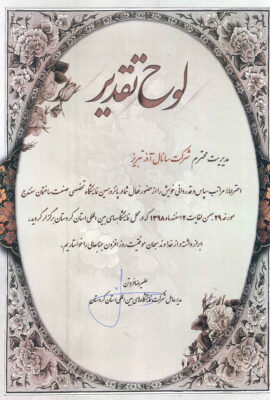 لوح تقدیر
مدیریت محترم شرکت سانال آذر تبریز
احتراما؛ مراتب سپاس و قدردانی خویش را از حضور فعال شما در پانزدهمین نمایشگاه تخصصی صنعت ساختمان سنندج
مورخه ۲۹ بهمن لغایت ۲ اسفند ماه ۱۳۹۸ که در محل نمایشگاههای بین المللی استان کردستان برگزار گردید،
ابراز داشته و از خداوند سبحان موفقیت روزافزون جنابعالی را خواستاریم.
علیرضا فروتن
مدیرعامل شرکت نمایشگاههای بین المللی استان کردستان